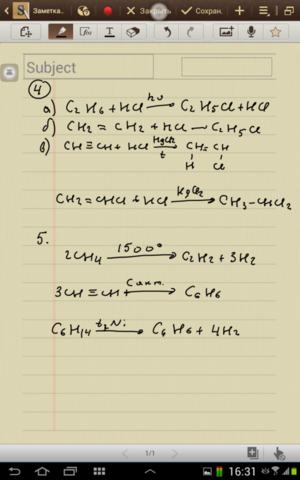 Заметка...
Закрыть
Сохран.
Subject
4
а) C2H6 + HCl hν→ C2H5Cl + HCl
б) CH2 = CH2 + HCl — C2H5Cl
в) CH ≡ CH + HCl HgCl2 t→ CH = CH
H Cl
CH2 = CHCl + HCl HgCl2→ CH3 – CHCl2
5.
2CH4 1500°→ C2H2 + 3H2
3CH ≡ CH Cакт.→ C6H6
C6H14 t, Ni→ C6H6 + 4H2
1/1
16:31